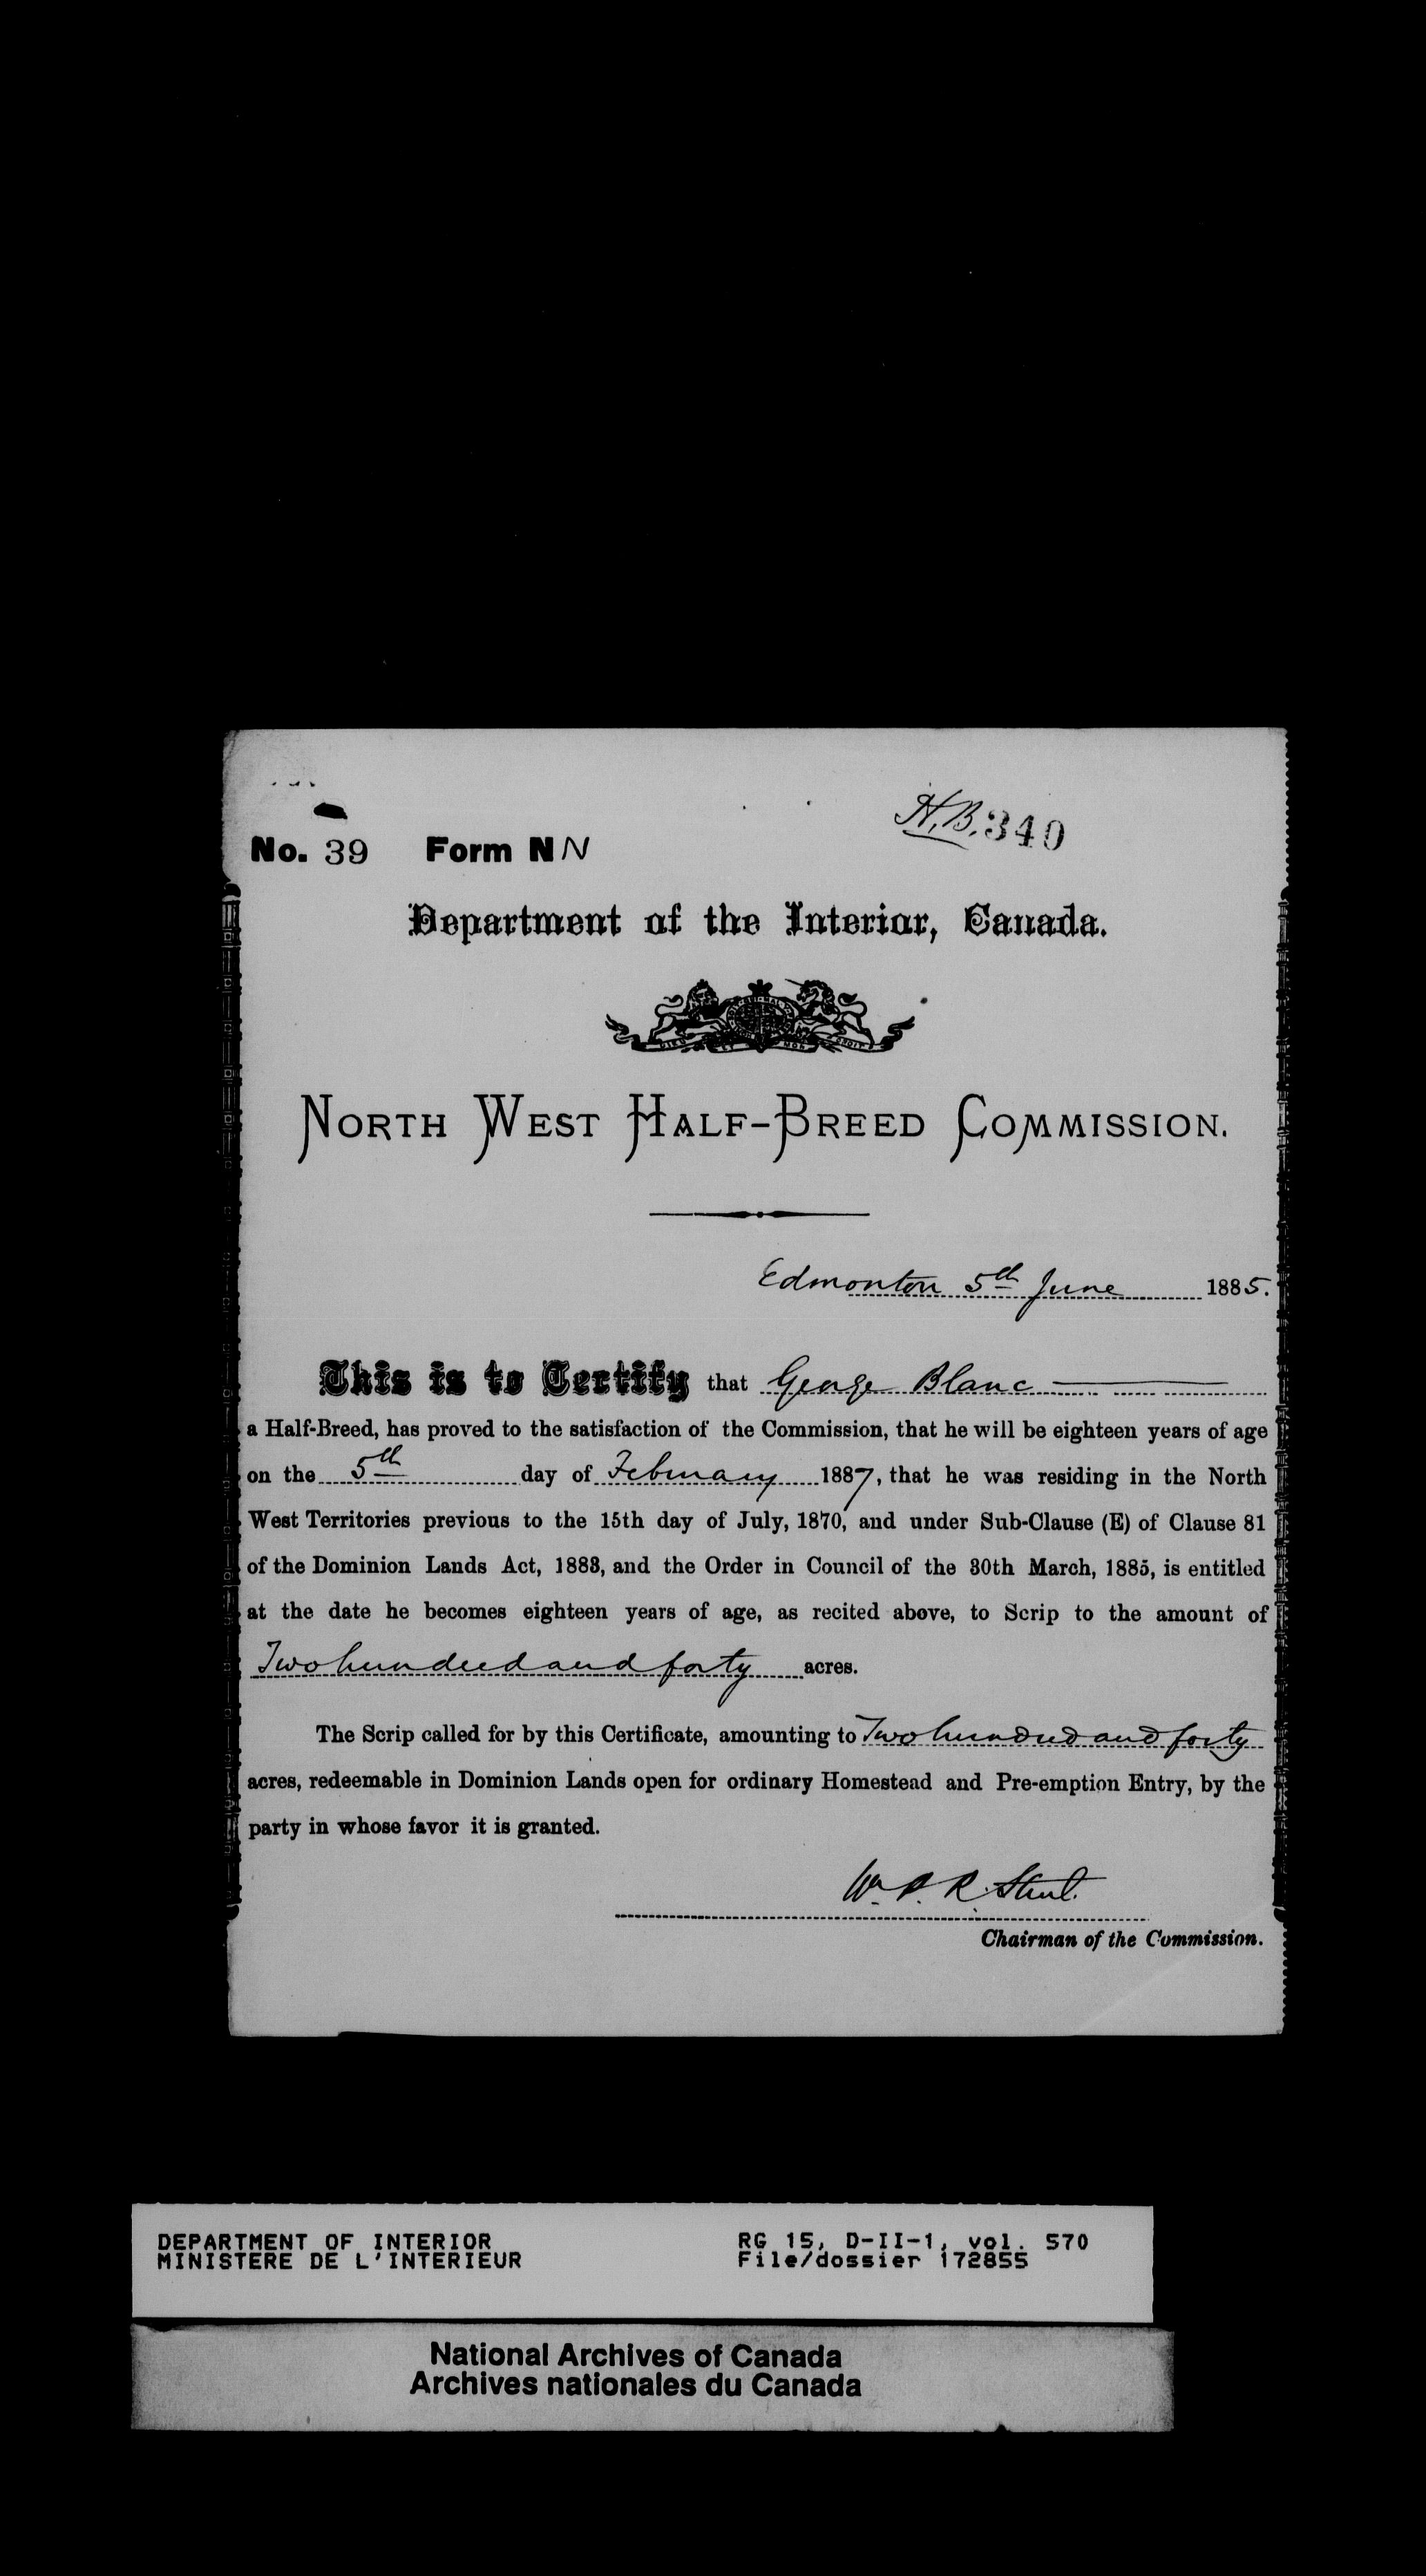 H.B. 340
No. 39 Form N N
Department of the Interior, Canada.
DIEU ET MON DROIT
NORTH WEST HALF-BREED COMMISSION.
Edmonton 5th June 1885.
This is to Certify that George Blanc
a Half-Breed, has proved to the satisfaction of the Commission, that he will be eighteen years of age
on the 5th day of February 1887, that he was residing in the North
West Territories previous to the 15th day of July, 1870, and under Sub-Clause (E) of Clause 81
of the Dominion Lands Act, 1883, and the Order in Council of the 30th March, 1885, is entitled
at the date he becomes eighteen years of age, as recited above, to Scrip to the amount of
Two hundred and forty acres.
The Scrip called for by this Certificate, amounting to Two hundred and forty
acres, redeemable in Dominion Lands open for ordinary Homestead and Pre-emption Entry, by the
party in whose favor it is granted.
Wm P. R. Street
Chairman of the Commission.
DEPARTMENT OF INTERIOR RG 15, D-II-1, vol. 570
MINISTERE DE L'INTERIEUR File/dossier 172855
National Archives of Canada
Archives nationales du Canada